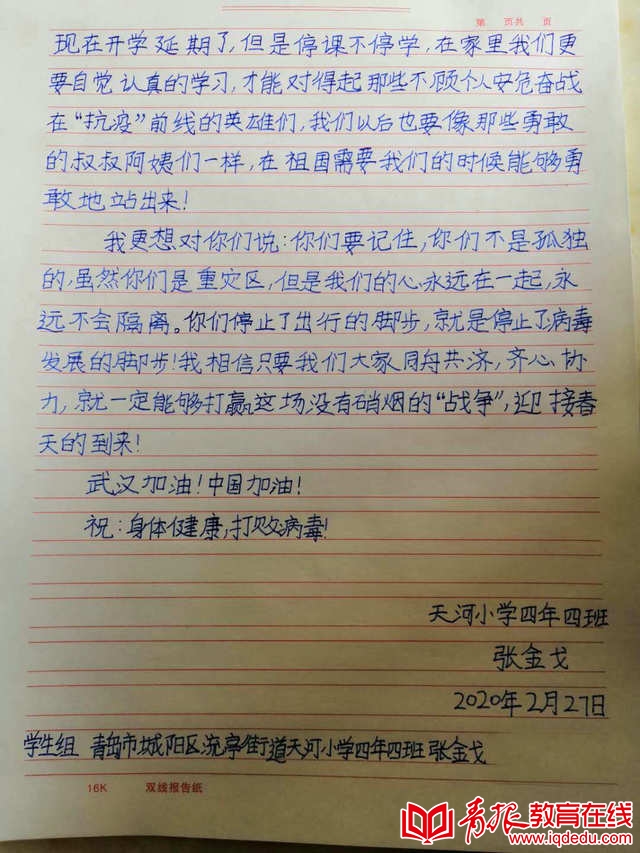 第 页共 页
现在开学延期了,但是停课不停学,在家里我们更
要自觉认真的学习,才能对得起那些不顾个人安危奋战
在“抗疫”前线的英雄们,我们以后也要像那些勇敢
的叔叔阿姨们一样,在祖国需要我们的时候能够勇
敢地站出来!
我更想对你们说:你们要记住,你们不是孤独
的,虽然你们是重灾区,但是我们的心永远在一起,永
远不会隔离。你们停止了出行的脚步,就是停止了病毒
发展的脚步!我相信只要我们大家同舟共济,齐心协
力,就一定能够打赢这场没有硝烟的“战争”,迎接春
天的到来!
武汉加油!中国加油!
祝:身体健康,打败病毒!
天河小学四年四班
张金戈
2020年2月27日
学生组 青岛市城阳区流亭街道天河小学四年四班 张金戈
16K 双线报告纸
青报教育在线
www.iqdedu.com